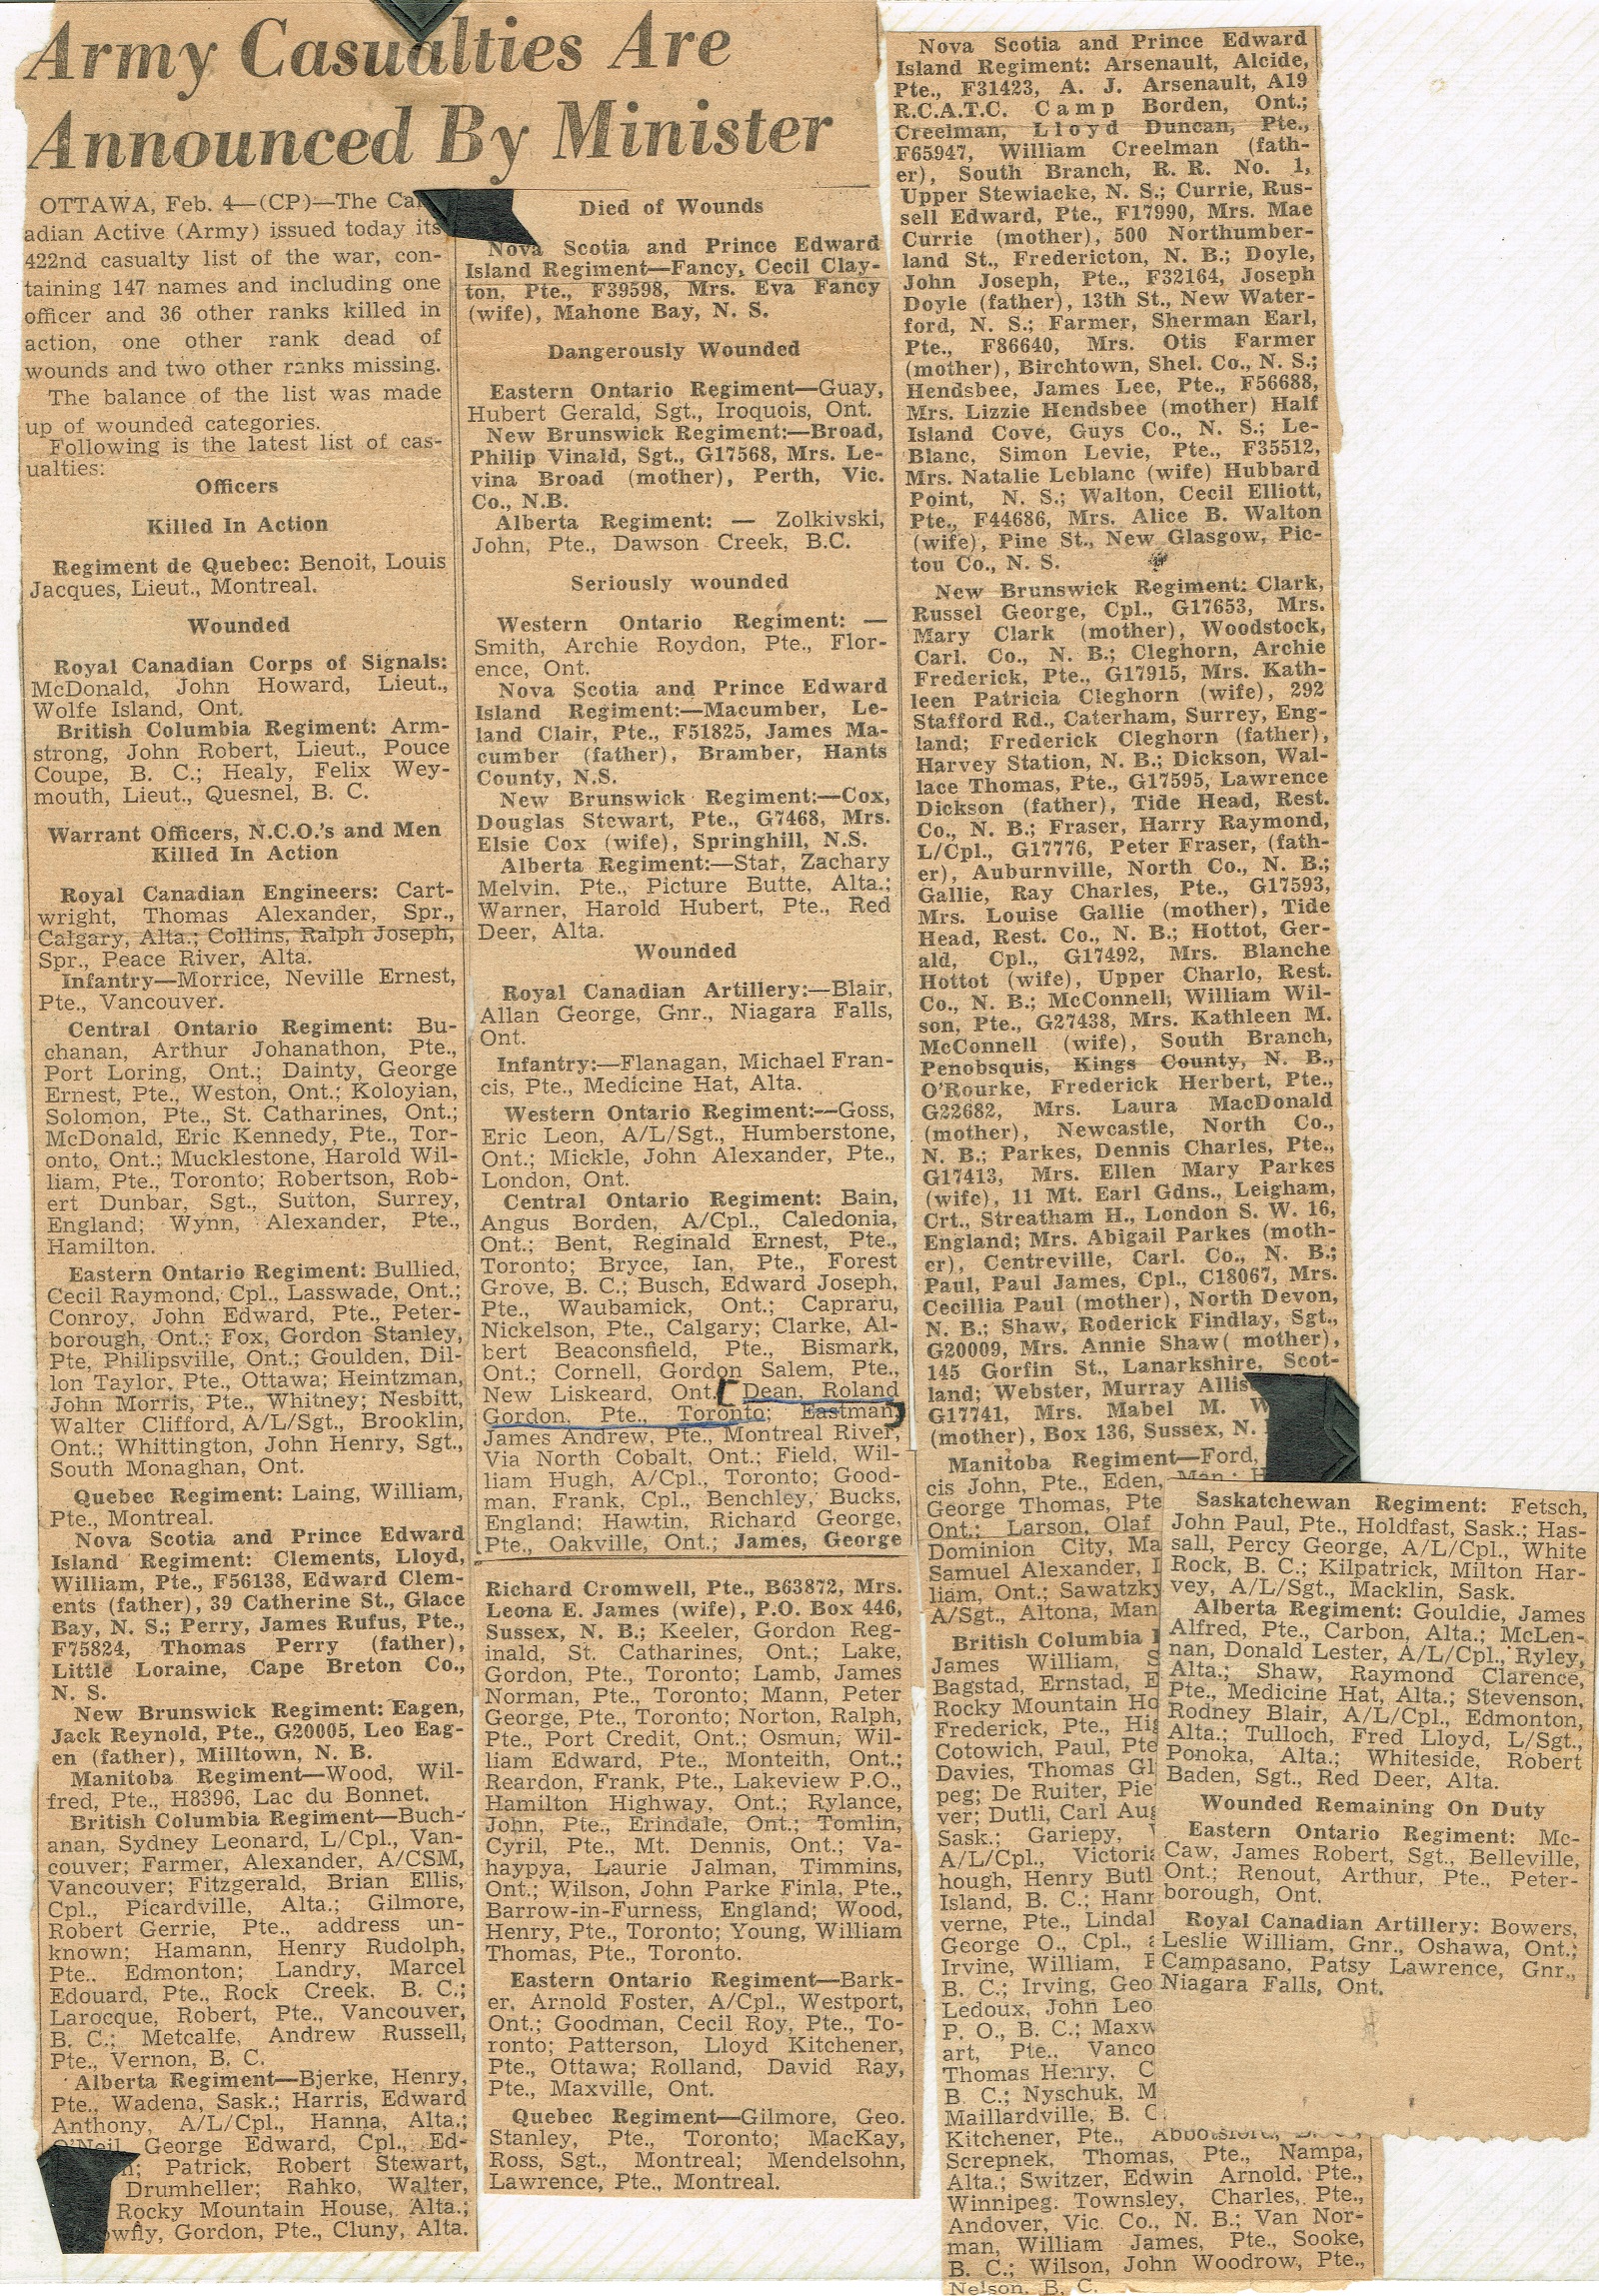 Army Casualties Are
Announced By Minister
OTTAWA, Feb. 4—(CP)—The Can-
adian Active (Army) issued today its
422nd casualty list of the war, con-
taining 147 names and including one
officer and 36 other ranks killed in
action, one other rank dead of
wounds and two other ranks missing.
The balance of the list was made
up of wounded categories.
Following is the latest list of cas-
ualties:
Officers
Killed In Action
Regiment de Quebec: Benoit, Louis
Jacques, Lieut., Montreal.
Wounded
Royal Canadian Corps of Signals:
McDonald, John Howard, Lieut.,
Wolfe Island, Ont.
British Columbia Regiment: Arm-
strong, John Robert, Lieut., Pouce
Coupe, B. C.; Healy, Felix Wey-
mouth, Lieut., Quesnel, B. C.
Warrant Officers, N.C.O.'s and Men
Killed In Action
Royal Canadian Engineers: Cart-
wright, Thomas Alexander, Spr.,
Calgary, Alta.; Collins, Ralph Joseph,
Spr., Peace River, Alta.
Infantry—Morrice, Neville Ernest,
Pte., Vancouver.
Central Ontario Regiment: Bu-
chanan, Arthur Johanathon, Pte.,
Port Loring, Ont.; Dainty, George
Ernest, Pte., Weston, Ont.; Koloyian,
Solomon, Pte., St. Catharines, Ont.;
McDonald, Eric Kennedy, Pte., Tor-
onto, Ont.; Mucklestone, Harold Wil-
liam, Pte., Toronto; Robertson, Rob-
ert Dunbar, Sgt., Sutton, Surrey,
England; Wynn, Alexander, Pte.,
Hamilton.
Eastern Ontario Regiment: Bullied,
Cecil Raymond, Cpl., Lasswade, Ont.;
Conroy, John Edward, Pte., Peter-
borough, Ont.; Fox, Gordon Stanley,
Pte, Philipsville, Ont.; Goulden, Dil-
lon Taylor, Pte., Ottawa; Heintzman,
John Morris, Pte., Whitney; Nesbitt,
Walter Clifford, A/L/Sgt., Brooklin,
Ont.; Whittington, John Henry, Sgt.,
South Monaghan, Ont.
Quebec Regiment: Laing, William,
Pte., Montreal.
Nova Scotia and Prince Edward
Island Regiment: Clements, Lloyd,
William, Pte., F56138, Edward Clem-
ents (father), 39 Catherine St., Glace
Bay, N. S.; Perry, James Rufus, Pte.,
F75824, Thomas Perry (father),
Little Loraine, Cape Breton Co.,
N. S.
New Brunswick Regiment: Eagen,
Jack Reynold, Pte., G20005, Leo Eag-
en (father), Milltown, N. B.
Manitoba Regiment—Wood, Wil-
fred, Pte., H8396, Lac du Bonnet.
British Columbia Regiment—Buch-
anan, Sydney Leonard, L/Cpl., Van-
couver; Farmer, Alexander, A/CSM,
Vancouver; Fitzgerald, Brian Ellis,
Cpl., Picardville, Alta.; Gilmore,
Robert Gerrie, Pte., address un-
known; Hamann, Henry Rudolph,
Pte., Edmonton; Landry, Marcel
Edouard, Pte., Rock Creek, B. C.;
Larocque, Robert, Pte., Vancouver,
B. C.; Metcalfe, Andrew Russell,
Pte., Vernon, B. C.
Alberta Regiment—Bjerke, Henry,
Pte., Wadena, Sask.; Harris, Edward
Anthony, A/L/Cpl., Hanna, Alta.;
O'Neil, George Edward, Cpl., Ed-
Patrick, Robert Stewart,
Drumheller; Rahko, Walter,
Rocky Mountain House, Alta.;
owfly, Gordon, Pte., Cluny, Alta.
Died of Wounds
Nova Scotia and Prince Edward
Island Regiment—Fancy, Cecil Clay-
ton, Pte., F39598, Mrs. Eva Fancy
(wife), Mahone Bay, N. S.
Dangerously Wounded
Eastern Ontario Regiment—Guay,
Hubert Gerald, Sgt., Iroquois, Ont.
New Brunswick Regiment:—Broad,
Philip Vinald, Sgt., G17568, Mrs. Le-
vina Broad (mother), Perth, Vic.
Co., N.B.
Alberta Regiment: — Zolkivski,
John, Pte., Dawson Creek, B.C.
Seriously wounded
Western Ontario Regiment: —
Smith, Archie Roydon, Pte., Flor-
ence, Ont.
Nova Scotia and Prince Edward
Island Regiment:—Macumber, Le-
land Clair, Pte., F51825, James Ma-
cumber (father), Bramber, Hants
County, N.S.
New Brunswick Regiment:—Cox,
Douglas Stewart, Pte., G7468, Mrs.
Elsie Cox (wife), Springhill, N.S.
Alberta Regiment:—Star, Zachary
Melvin, Pte., Picture Butte, Alta.;
Warner, Harold Hubert, Pte., Red
Deer, Alta.
Wounded
Royal Canadian Artillery:—Blair,
Allan George, Gnr., Niagara Falls,
Ont.
Infantry:—Flanagan, Michael Fran-
cis, Pte., Medicine Hat, Alta.
Western Ontario Regiment:—Goss,
Eric Leon, A/L/Sgt., Humberstone,
Ont.; Mickle, John Alexander, Pte.,
London, Ont.
Central Ontario Regiment: Bain,
Angus Borden, A/Cpl., Caledonia,
Ont.; Bent, Reginald Ernest, Pte.,
Toronto; Bryce, Ian, Pte., Forest
Grove, B. C.; Busch, Edward Joseph,
Pte., Waubamick, Ont.; Capraru,
Nickelson, Pte., Calgary; Clarke, Al-
bert Beaconsfield, Pte., Bismark,
Ont.; Cornell, Gordon Salem, Pte.,
New Liskeard, Ont. [ Dean, Roland
Gordon, Pte., Toronto; Eastman,
James Andrew, Pte., Montreal River,
Via North Cobalt, Ont.; Field, Wil-
liam Hugh, A/Cpl., Toronto; Good-
man, Frank, Cpl., Benchley, Bucks,
England; Hawtin, Richard George,
Pte., Oakville, Ont.; James, George
Richard Cromwell, Pte., B63872, Mrs.
Leona E. James (wife), P.O. Box 446,
Sussex, N. B.; Keeler, Gordon Reg-
inald, St. Catharines, Ont.; Lake,
Gordon, Pte., Toronto; Lamb, James
Norman, Pte., Toronto; Mann, Peter
George, Pte., Toronto; Norton, Ralph,
Pte., Port Credit, Ont.; Osmun, Wil-
liam Edward, Pte., Monteith, Ont.;
Reardon, Frank, Pte., Lakeview P.O.,
Hamilton Highway, Ont.; Rylance,
John, Pte., Erindale, Ont.; Tomlin,
Cyril, Pte., Mt. Dennis, Ont.; Va-
haypya, Laurie Jalman, Timmins,
Ont.; Wilson, John Parke Finla, Pte.,
Barrow-in-Furness, England; Wood,
Henry, Pte., Toronto; Young, William
Thomas, Pte., Toronto.
Eastern Ontario Regiment—Bark-
er, Arnold Foster, A/Cpl., Westport,
Ont.; Goodman, Cecil Roy, Pte., To-
ronto; Patterson, Lloyd Kitchener,
Pte., Ottawa; Rolland, David Ray,
Pte., Maxville, Ont.
Quebec Regiment—Gilmore, Geo.
Stanley, Pte., Toronto; MacKay,
Ross, Sgt., Montreal; Mendelsohn,
Lawrence, Pte., Montreal.
Nova Scotia and Prince Edward
Island Regiment: Arsenault, Alcide,
Pte., F31423, A. J. Arsenault, A19
R.C.A.T.C. Camp Borden, Ont.;
Creelman, Lloyd Duncan, Pte.,
F65947, William Creelman (fath-
er), South Branch, R. R. No. 1,
Upper Stewiacke, N. S.; Currie, Rus-
sell Edward, Pte., F17990, Mrs. Mae
Currie (mother), 500 Northumber-
land St., Fredericton, N. B.; Doyle,
John Joseph, Pte., F32164, Joseph
Doyle (father), 13th St., New Water-
ford, N. S.; Farmer, Sherman Earl,
Pte., F86640, Mrs. Otis Farmer
(mother), Birchtown, Shel. Co., N. S.;
Hendsbee, James Lee, Pte., F56688,
Mrs. Lizzie Hendsbee (mother) Half
Island Cove, Guys Co., N. S.; Le-
Blanc, Simon Levie, Pte., F35512,
Mrs. Natalie Leblanc (wife) Hubbard
Point, N. S.; Walton, Cecil Elliott,
Pte., F44686, Mrs. Alice B. Walton
(wife), Pine St., New Glasgow, Pic-
tou Co., N. S.
New Brunswick Regiment: Clark,
Russel George, Cpl., G17653, Mrs.
Mary Clark (mother), Woodstock,
Carl. Co., N. B.; Cleghorn, Archie
Frederick, Pte., G17915, Mrs. Kath-
leen Patricia Cleghorn (wife), 292
Stafford Rd., Caterham, Surrey, Eng-
land; Frederick Cleghorn (father),
Harvey Station, N. B.; Dickson, Wal-
lace Thomas, Pte., G17595, Lawrence
Dickson (father), Tide Head, Rest.
Co., N. B.; Fraser, Harry Raymond,
L/Cpl., G17776, Peter Fraser, (fath-
er), Auburnville, North Co., N. B.;
Gallie, Ray Charles, Pte., G17593,
Mrs. Louise Gallie (mother), Tide
Head, Rest. Co., N. B.; Hottot, Ger-
ald, Cpl., G17492, Mrs. Blanche
Hottot (wife), Upper Charlo, Rest.
Co., N. B.; McConnell, William Wil-
son, Pte., G27438, Mrs. Kathleen M.
McConnell (wife), South Branch,
Penobsquis, Kings County, N. B.,
O'Rourke, Frederick Herbert, Pte.,
G22682, Mrs. Laura MacDonald
(mother), Newcastle, North Co.,
N. B.; Parkes, Dennis Charles, Pte.,
G17413, Mrs. Ellen Mary Parkes
(wife), 11 Mt. Earl Gdns., Leigham,
Crt., Streatham H., London S. W. 16,
England; Mrs. Abigail Parkes (moth-
er), Centreville, Carl. Co., N. B.;
Paul, Paul James, Cpl., C18067, Mrs.
Cecillia Paul (mother), North Devon,
N. B.; Shaw, Roderick Findlay, Sgt.,
G20009, Mrs. Annie Shaw( mother),
145 Gorfin St., Lanarkshire, Scot-
land; Webster, Murray Allis
G17741, Mrs. Mabel M. W
(mother), Box 136, Sussex, N.
Manitoba Regiment—Ford,
cis John, Pte., Eden, Man.; H
George Thomas, Pte
Ont.; Larson, Olaf
Dominion City, Ma
Samuel Alexander,
liam, Ont.; Sawatzky
A/Sgt., Altona, Man
British Columbia
James William, S
Bagstad, Ernstad, E
Rocky Mountain Ho
Frederick, Pte., Hig
Cotowich, Paul, Pte
Davies, Thomas Gl
peg; De Ruiter, Pie
ver; Dutli, Carl Aug
Sask.; Gariepy,
A/L/Cpl., Victoria
hough, Henry Butl
Island, B. C.; Hann
verne, Pte., Lindal
George O., Cpl.,
Irvine, William,
B. C.; Irving, Geo
Ledoux, John Leo
P. O., B. C.; Maxw
art, Pte., Vanco
Thomas Henry, C
B. C.; Nyschuk, M
Maillardville, B. C
Kitchener, Pte., Abbotsford,
Screpnek, Thomas, Pte., Nampa,
Alta.; Switzer, Edwin Arnold, Pte.,
Winnipeg. Townsley, Charles, Pte.,
Andover, Vic. Co., N. B.; Van Nor-
man, William James, Pte., Sooke,
B. C.; Wilson, John Woodrow, Pte.,
Nelson, B. C.
Saskatchewan Regiment: Fetsch,
John Paul, Pte., Holdfast, Sask.; Has-
sall, Percy George, A/L/Cpl., White
Rock, B. C.; Kilpatrick, Milton Har-
vey, A/L/Sgt., Macklin, Sask.
Alberta Regiment: Gouldie, James
Alfred, Pte., Carbon, Alta.; McLen-
nan, Donald Lester, A/L/Cpl., Ryley,
Alta.; Shaw, Raymond Clarence,
Pte., Medicine Hat, Alta.; Stevenson,
Rodney Blair, A/L/Cpl., Edmonton,
Alta.; Tulloch, Fred Lloyd, L/Sgt.,
Ponoka, Alta.; Whiteside, Robert
Baden, Sgt., Red Deer, Alta.
Wounded Remaining On Duty
Eastern Ontario Regiment: Mc-
Caw, James Robert, Sgt., Belleville,
Ont.; Renout, Arthur, Pte., Peter-
borough, Ont.
Royal Canadian Artillery: Bowers,
Leslie William, Gnr., Oshawa, Ont.;
Campasano, Patsy Lawrence, Gnr.,
Niagara Falls, Ont.